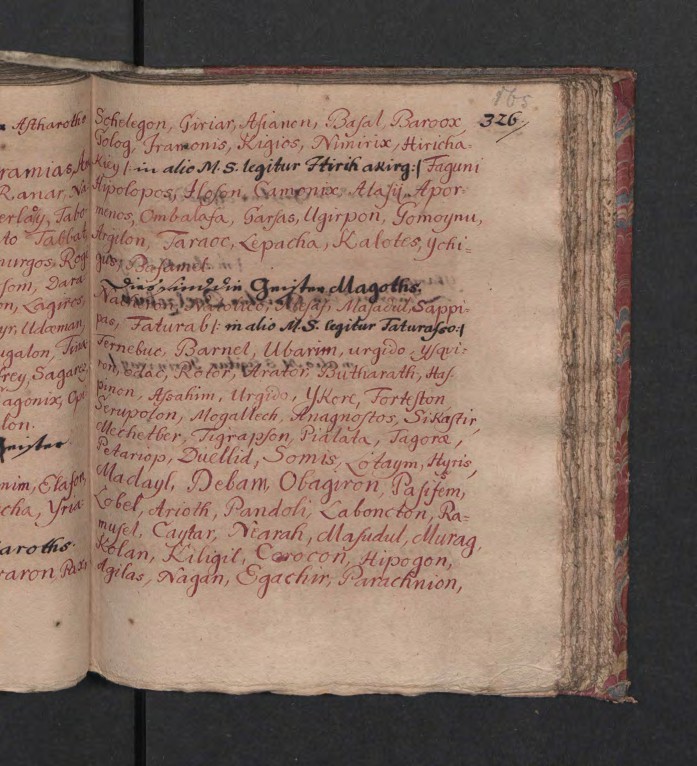 Astharoth
ramias, As
Ranar, Na
erlaÿ, Tabo
to Tabbat
nurgos, Rog
som, Dara
on, Lagiros,
yr, Udæman,
ugalon, Tina
frey, Sagarez
agonix, Opi
lon.
Geister
nim, Elafon,
cha, Yria
aroths.
raron, Pax
165
326
Schelegon, Giriar, Asianon, Basal, Baroox
Golog, Iramonis, Kigios, Nimirix, Hiricha-
Kiey /: in alio M. S. legitur Hirih akirg :/ Faguni
Hipolopos, Iloson, Camonix, Alasij, Apor-
menos, Ombalafa, Garsas, Ugirpon, Gomoynu,
Argilon, Taraoc, Lepacha, Kalotes, Ychi-
gas, Bafamet.
Dies sind die Geister Magoths.
Masadul, Sappi-
pas, Faturab /: in alio M. S. legitur Taturasoo :/
Fernebuc, Barnel, Ubarim, urgido, ysqui-
ron, odac, Rotor, Arator, Butharath, Has-
pinon, Asoahim, Urgido, YKore, Torteston
Serupolon, Mogallech, Anagnostos, SiKastir
Mechetber, Tigrapson, Pialata, Tagora,
Petariop, Duellid, Somis, Lotaym, Hyris,
Madayl, Debam, Obagiron, Pasifem,
Lobel, Arioth, Pandoli, Laboncton, Ra-
musel, Caytar, Ntarah, Masudul, Murag,
Kolan, Kiligil, Corocon, Hipogon,
Agilas, Nagan, Egachir, Parachnion,